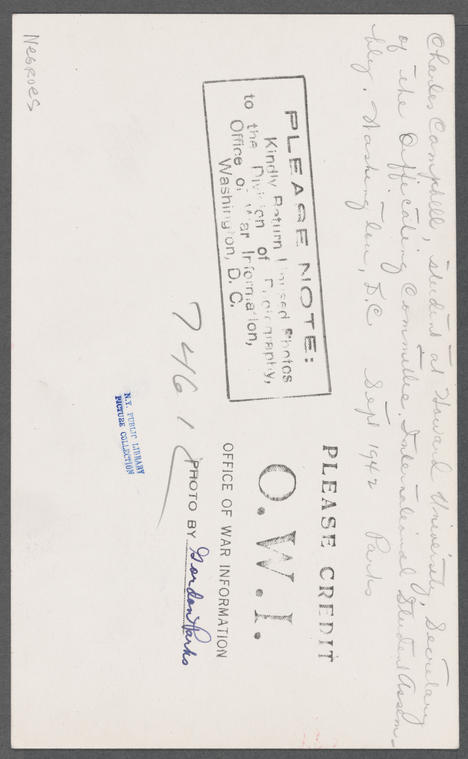 Charles Campbell, student at Howard University, Secretary
of the Officiating Committee, International Student Assem-
bly. Washington, D.C Sept 1942 Parks
PLEASE NOTE:
Kindly Return Unused Photos
to the Division of Photography,
Office of War Information,
Washington, D. C.
PLEASE CREDIT
O.W.I.
OFFICE OF WAR INFORMATION
PHOTO BY Gordon Parks
7461
N.Y. PUBLIC LIBRARY
PICTURE COLLECTION
NEGROES